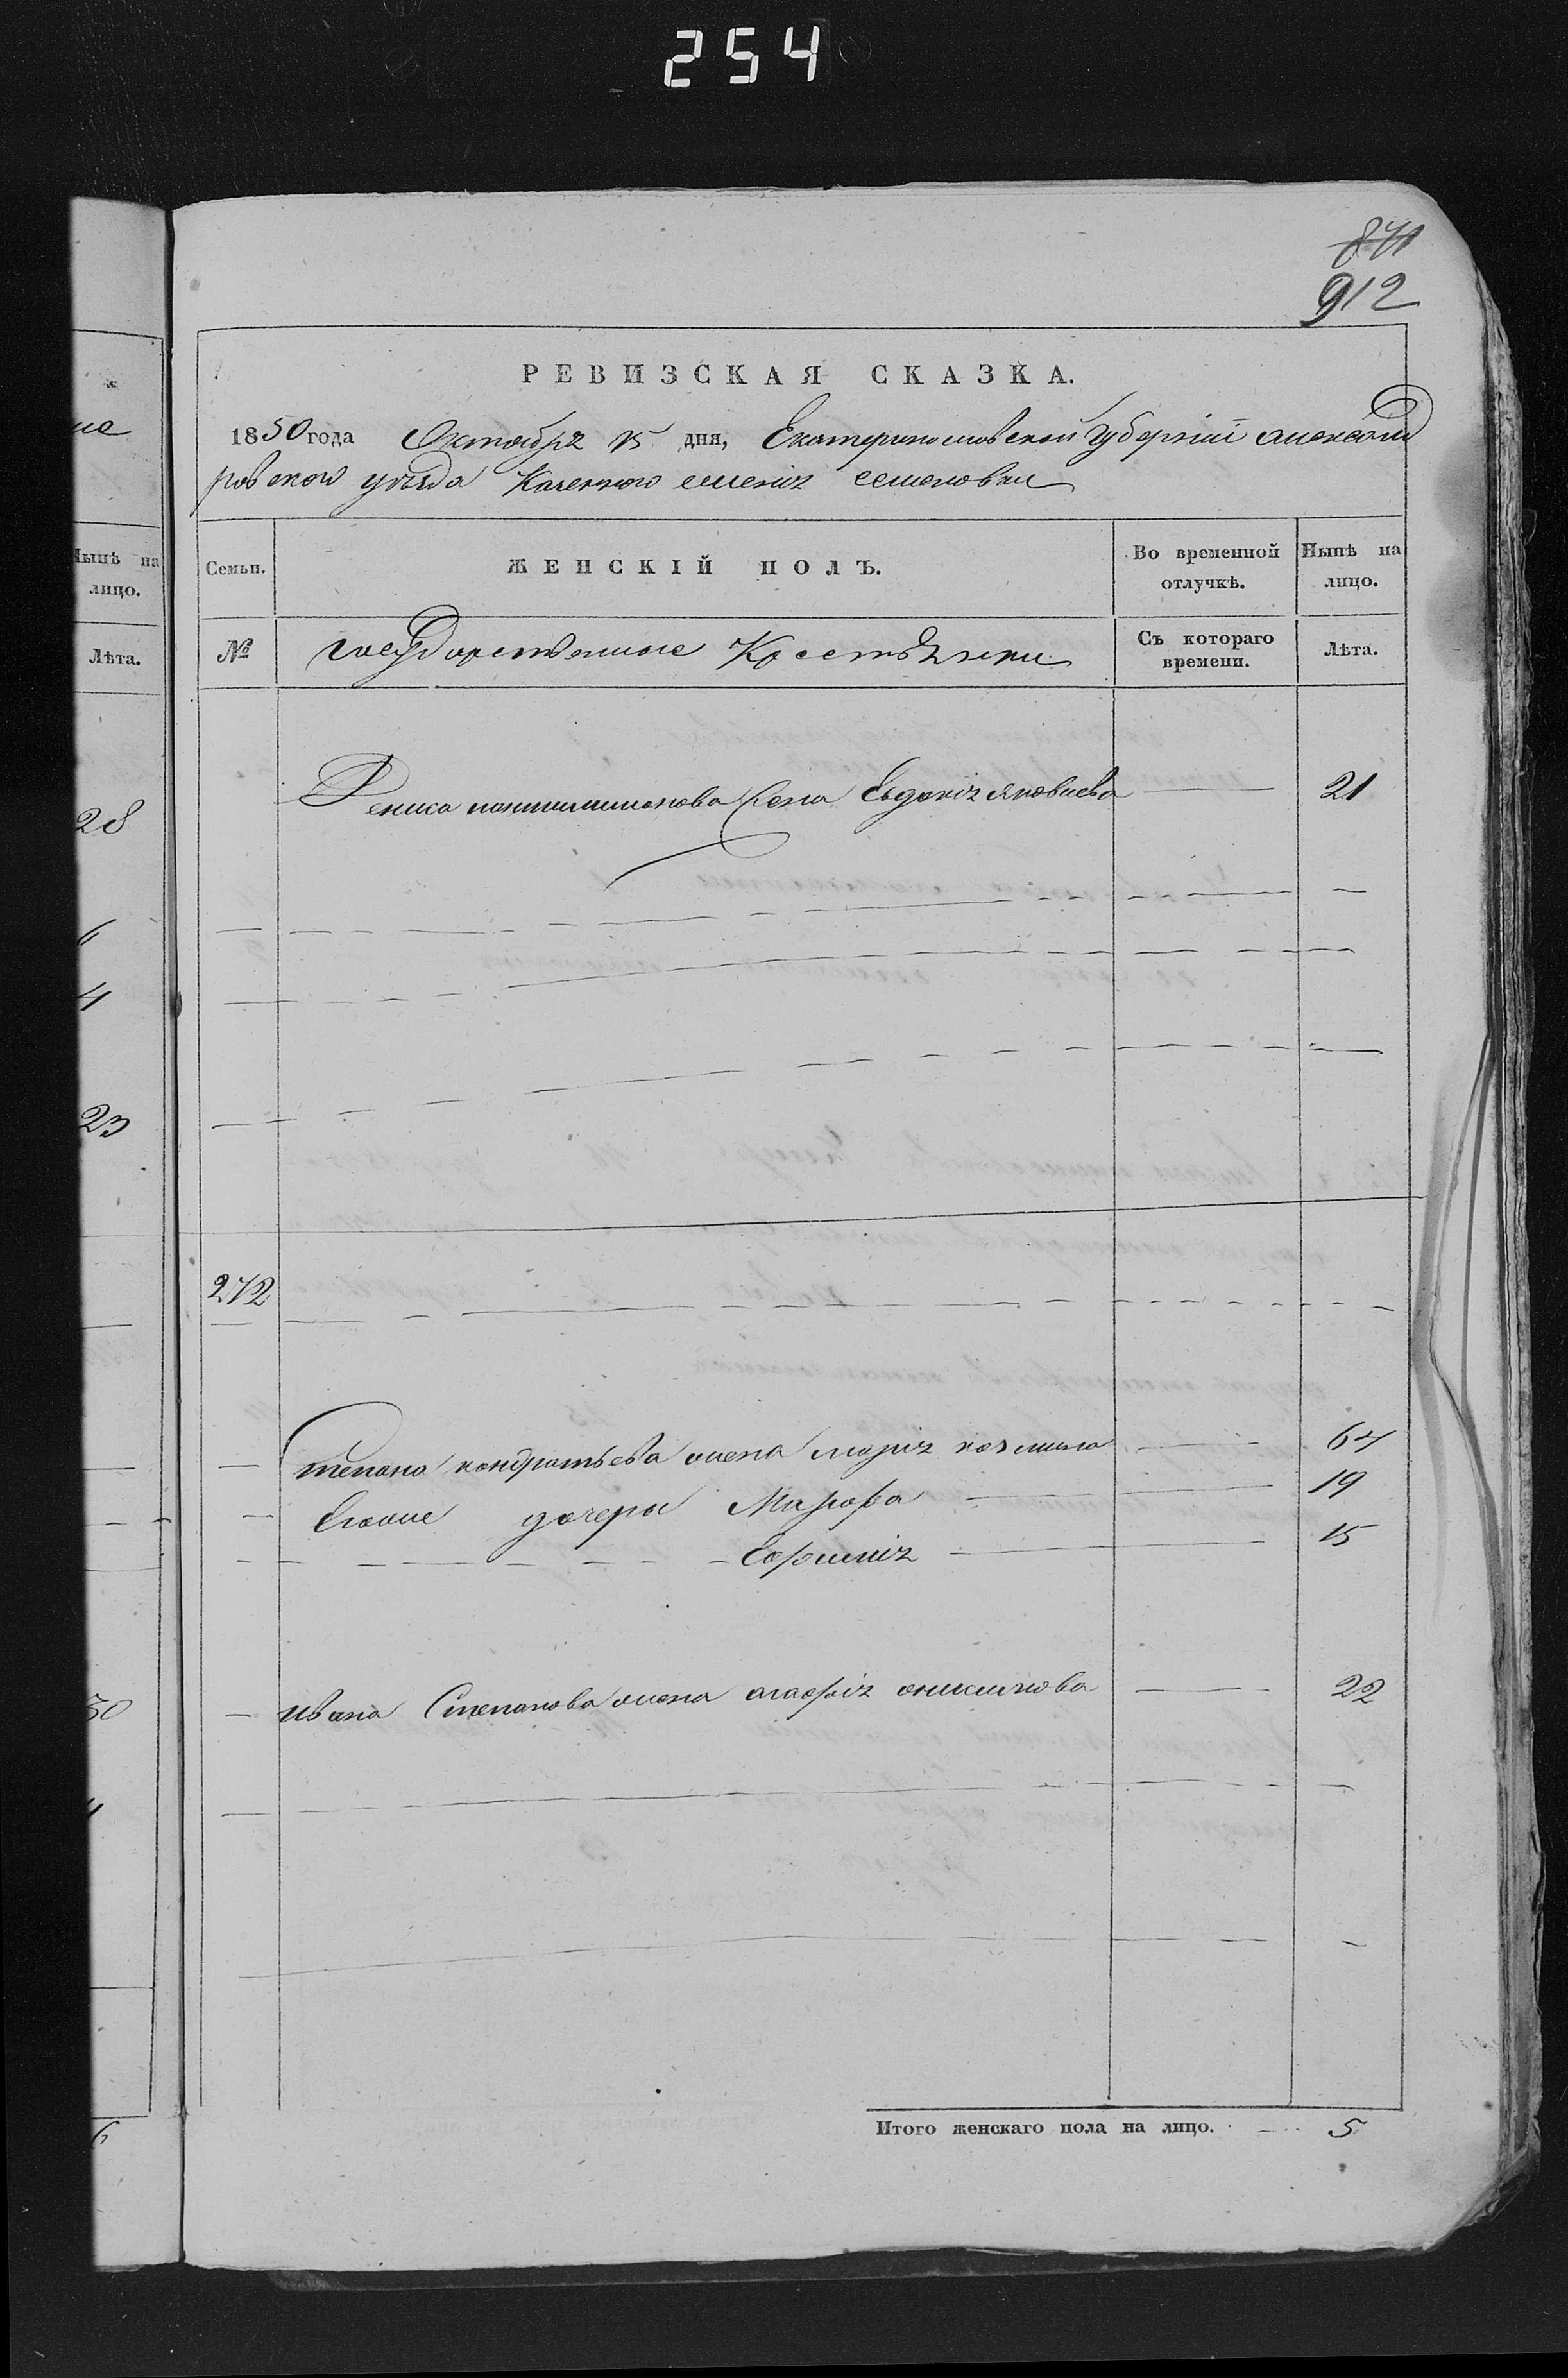 254
871
912
РЕВИЗСКАЯ СКАЗКА.
1850 года Октября 15 дня, Екатеринославской Губернии александ
ровского уезда Казенного селения семеновки
Семьи. ЖЕНСКІЙ ПОЛЪ. Во временной отлучкѣ. Нынѣ на лицо.
№ государственные Крестьянки Съ котораго времени. Лѣта.
Дениса пантилимонова жена Евдокия яковлева 21
272
Степана кондратьева жена мария козмина 67
Егоже дочери Марфа 19
Ефимия 15
ивана Степанова жена агафия 22
Итого женскаго пола на лицо. 5
Нынѣ на
лицо.
Лѣта.
28
6
4
23
30
4
6